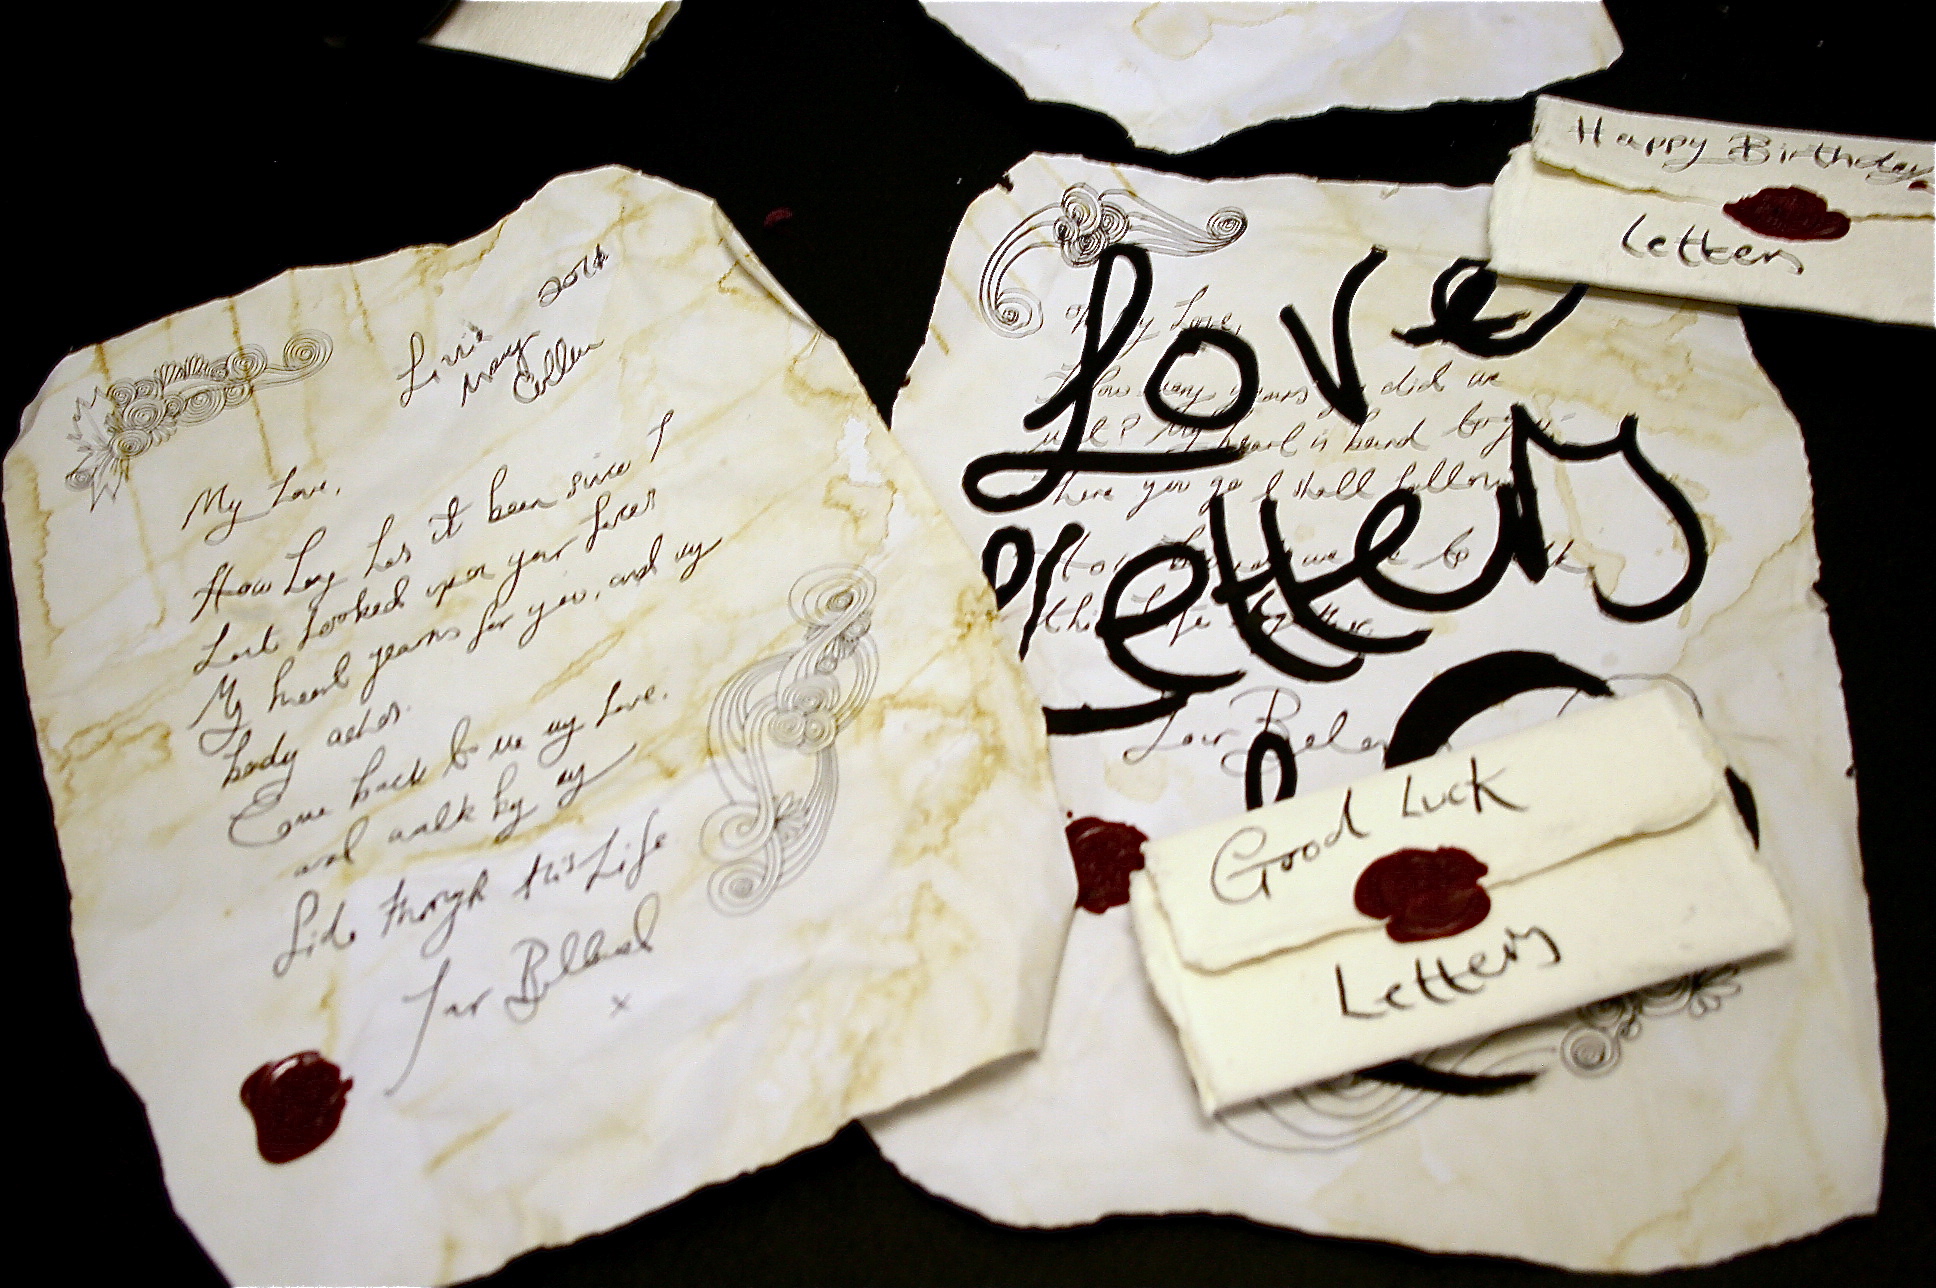 Lizzie
Mary
Cullen
My Love,
How Long has it been since I
Last Looked upon your faces
My heart yearns for you, and my
body aches.
Come back to me my Love.
and walk by my
Side through this Life
Your Beloved
x
my Love,
How many years did we
wait? My heart is bound to you
Where you go I shall follow
this Life together
Your
Love
Letters
Happy Birthday
Letters
Good Luck
Letters